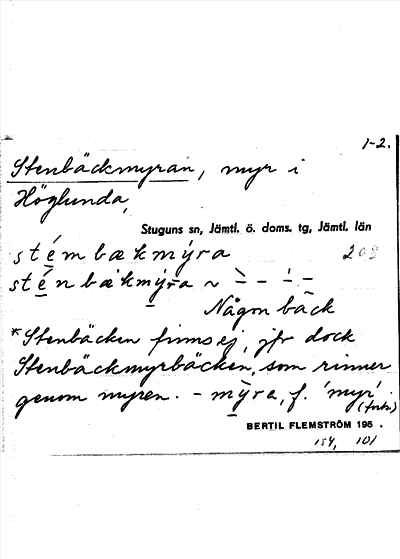 1-2.
Stenbäckmyran, myr i
Höglunda,
Stuguns sn, Jämtl. ö. doms. tg, Jämtl. län
stémbækmýra 203
sténbækmýra ~
Någon bäck
*Stenbäcken finns ej, jfr dock
Stenbäckmyrbäcken, som rinner
genom myren. - mỳra, f. 'myr'.
(forts)
BERTIL FLEMSTRÖM 195 .
154, 101